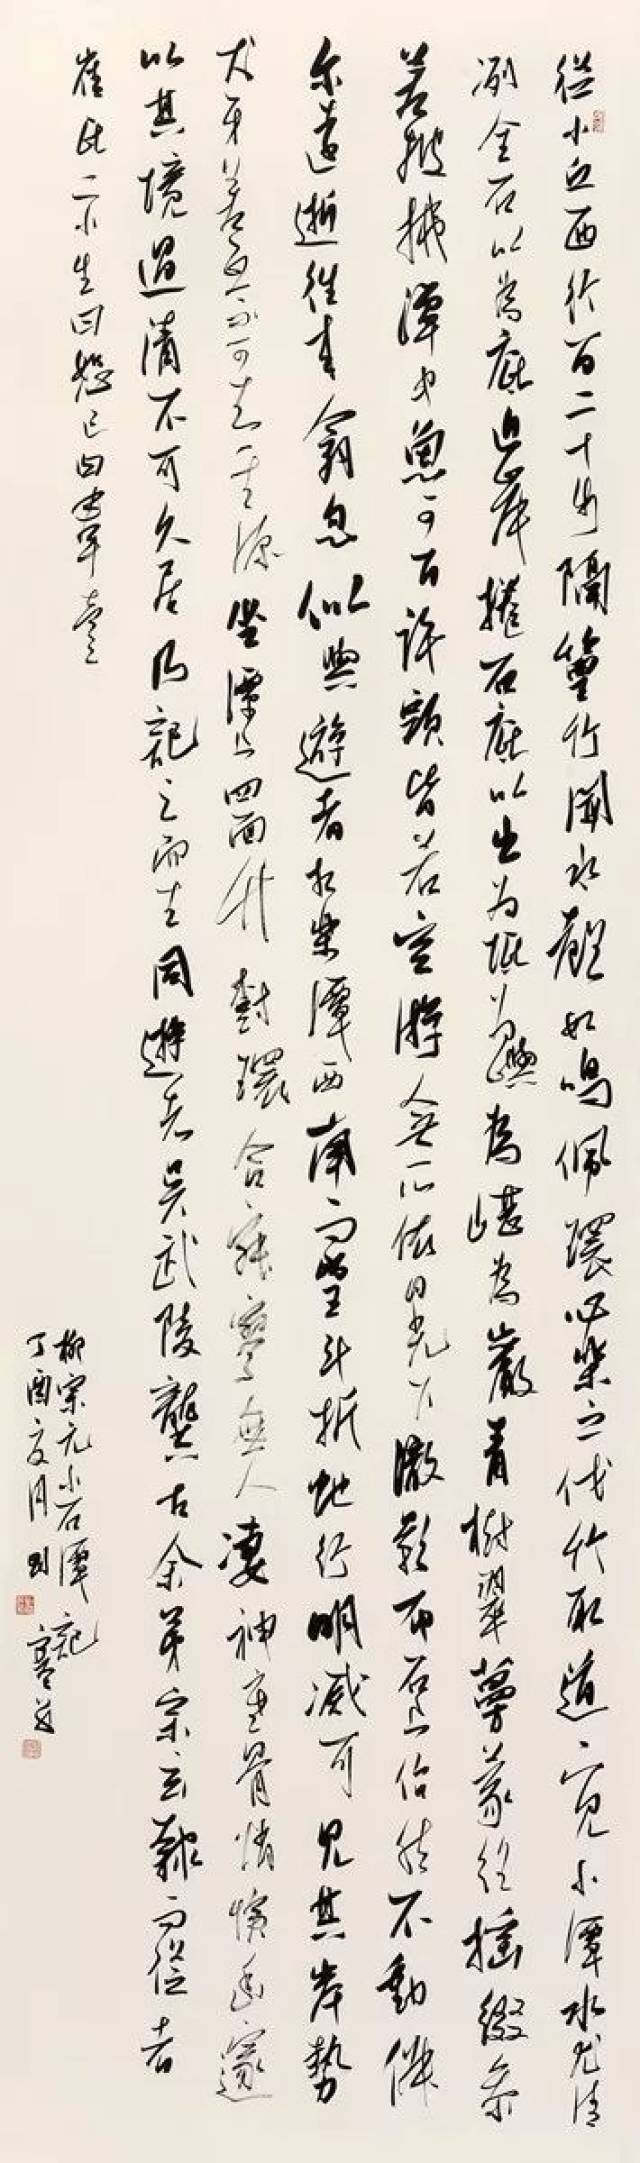 從小丘西行百二十步隔篁竹聞水聲如鳴佩環心樂之伐竹取道下見小潭水尤清
冽全石以為底近岸捲石底以出為坻為嶼為嵁為巖青樹翠蔓蒙絡搖綴參
差披拂潭中魚可百許頭皆若空游無所依日光下澈影布石上佁然不動俶
尔遠逝往來翕忽似與遊者相樂潭西南而望斗折蛇行明滅可見其岸勢
犬牙差互不可知其源坐潭上四面竹樹環合寂寥無人凄神寒骨悄愴幽邃
以其境過清不可久居乃記之而去同遊者吳武陵龔古余弟宗玄隸而從者
崔氏二小生曰恕己曰奉壹
柳宗元小石潭記
丁酉夏月